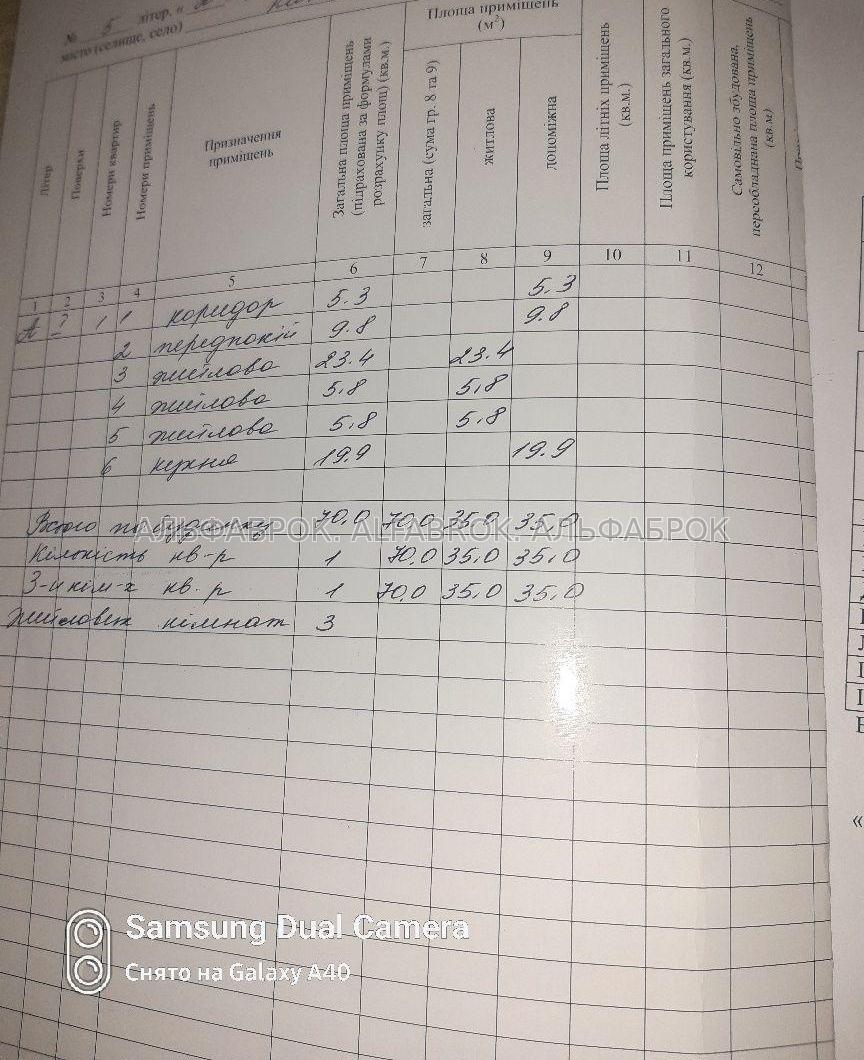 № 5 літер. «
місто (селище, село)
Літер
Поверхи
Номери квартир
Номери приміщень
Призначення приміщень
Загальна площа приміщень (підрахована за формулами розрахунку площ) (кв.м.)
Площа приміщень (м²)
загальна (сума гр. 8 та 9)
житлова
допоміжна
Площа літніх приміщень (кв.м.)
Площа приміщень загального користування (кв.м.)
Самовільно збудована, переобладнана площа приміщень (кв.м)
1 2 3 4 5 6 7 8 9 10 11 12
А 1 1 коридор 5.3 5.3
2 передпокій 9.8 9.8
3 житлова 23.4 23.4
4 житлова 5.8 5.8
5 житлова 5.8 5.8
6 кухня 19.9 19.9
Всього по будинку 70.0 70.0 35.0 35.0
АЛЬФАБРОК. ALFABROK. АЛЬФАБРОК
Кількість кв-р 1 70.0 35.0 35.0
3-и кім-х кв. р 1 70.0 35.0 35.0
житлових кімнат 3
Samsung Dual Camera
Снято на Galaxy A40